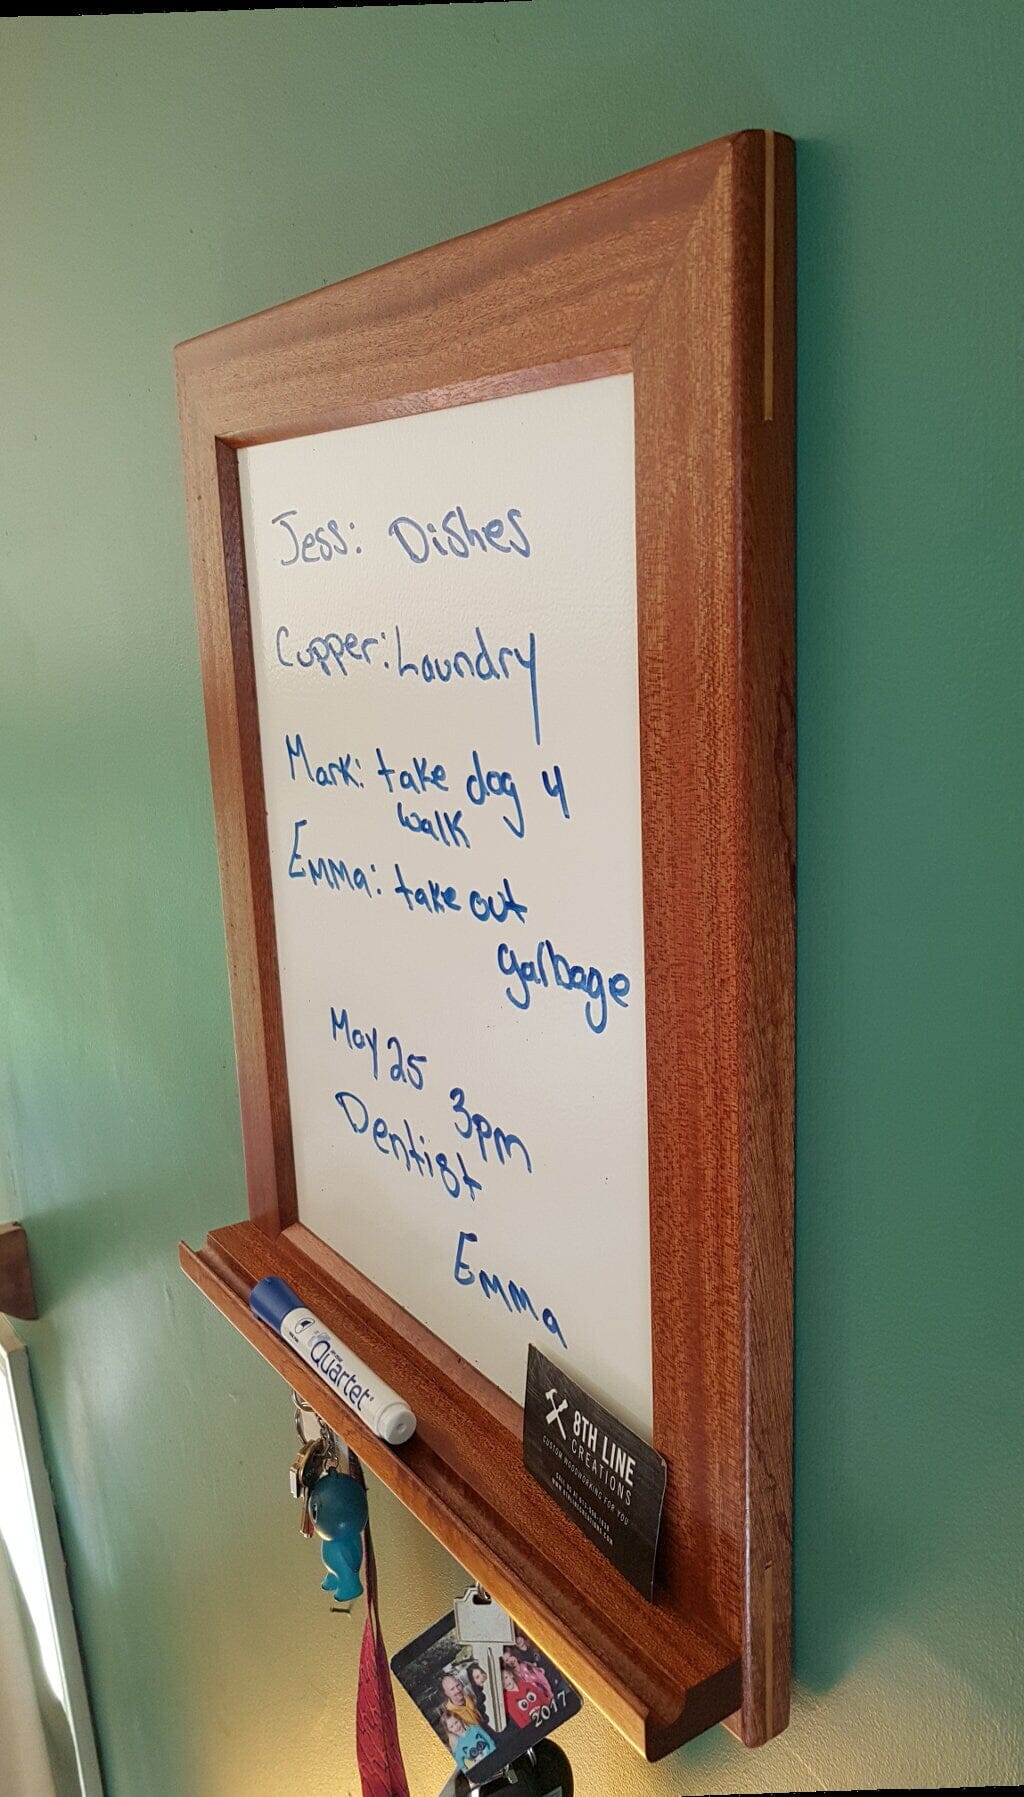 Jess: Dishes
Cupper: Laundry
Mark: take dog 4
walk
Emma: take out
garbage
May 25 3pm
Dentist
Emma
Quartet
8TH LINE
CREATIONS
CUSTOM WOODWORKING FOR YOU
2017